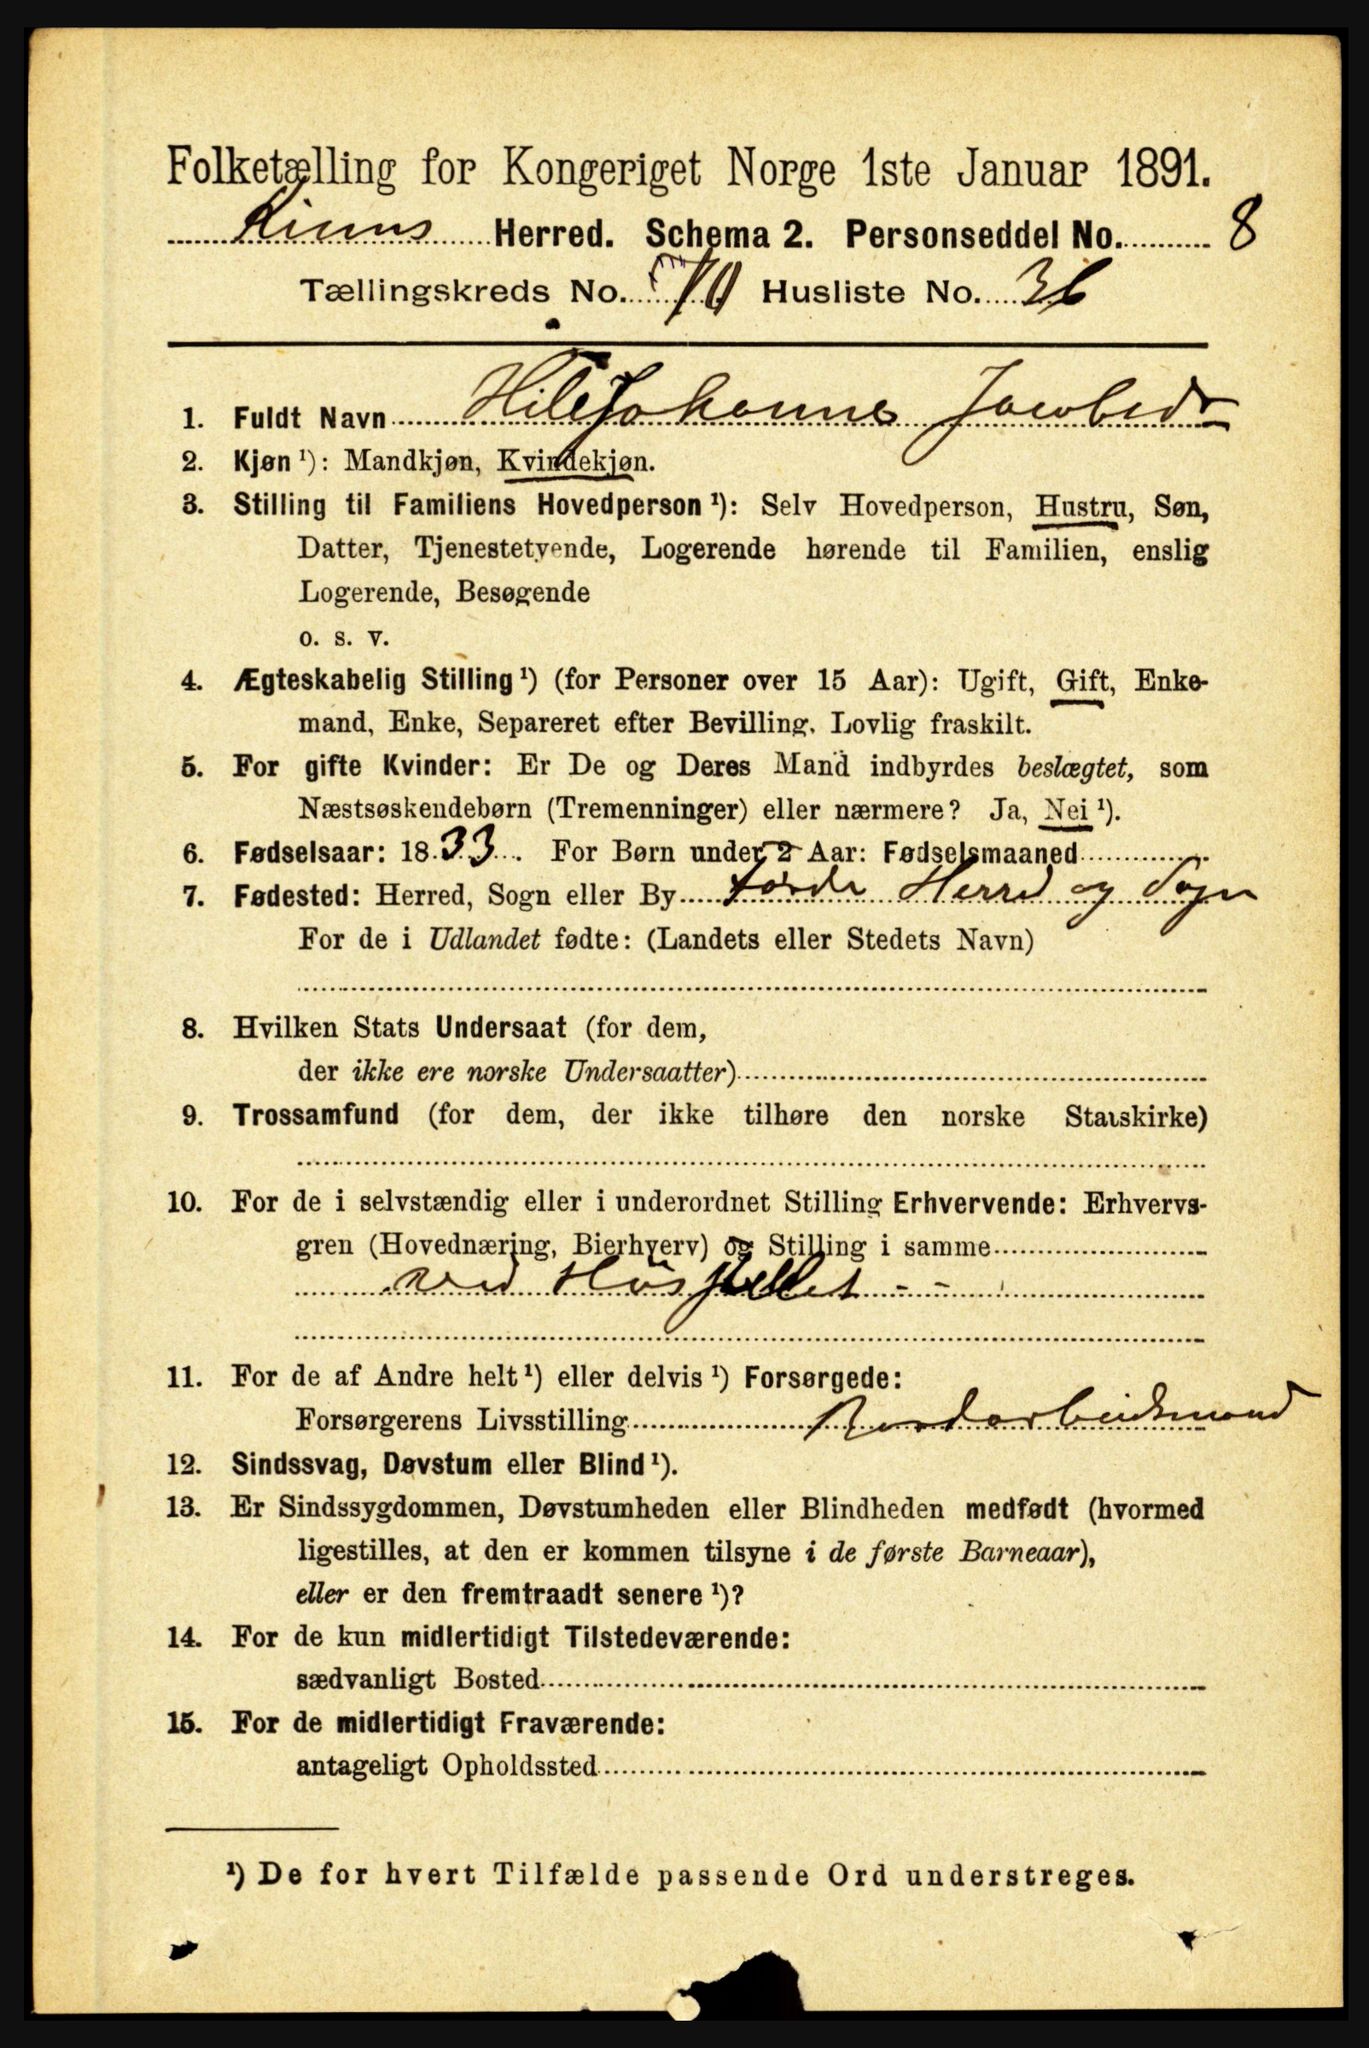 Folketælling for Kongeriget Norge 1ste Januar 1891.
Kinns Herred. Schema 2. Personseddel No. 8
Tællingskreds No. 10 Husliste No. 36
1. Fuldt Navn Johanne Jacobsdr
2. Kjøn ¹): Mandkjøn, Kvindekjøn.
3. Stilling til Familiens Hovedperson ¹): Selv Hovedperson, Hustru, Søn,
Datter, Tjenestetyende, Logerende hørende til Familien, enslig
Logerende, Besøgende
o. s. v.
4. Ægteskabelig Stilling ¹) (for Personer over 15 Aar): Ugift, Gift, Enke-
mand, Enke, Separeret efter Bevilling. Lovlig fraskilt.
5. For gifte Kvinder: Er De og Deres Mand indbyrdes beslægtet, som
Næstsøskendebørn (Tremenninger) eller nærmere? Ja, Nei ¹).
6. Fødselsaar: 1833. For Børn under 2 Aar: Fødselsmaaned
7. Fødested: Herred, Sogn eller By Førde Herred og Sogn
For de i Udlandet fødte: (Landets eller Stedets Navn)
8. Hvilken Stats Undersaat (for dem,
der ikke ere norske Undersaatter)
9. Trossamfund (for dem, der ikke tilhøre den norske Statskirke)
10. For de i selvstændig eller i underordnet Stilling Erhvervende: Erhvervs-
gren (Hovednæring, Bierhverv) og Stilling i samme
ved Husstellet - -
11. For de af Andre helt ¹) eller delvis ¹) Forsørgede:
Forsørgerens Livsstilling
12. Sindssvag, Døvstum eller Blind ¹).
13. Er Sindssygdommen, Døvstumheden eller Blindheden medfødt (hvormed
ligestilles, at den er kommen tilsyne i de første Barneaar),
eller er den fremtraadt senere ¹)?
14. For de kun midlertidigt Tilstedeværende:
sædvanligt Bosted
15. For de midlertidigt Fraværende:
antageligt Opholdssted
¹) De for hvert Tilfælde passende Ord understreges.